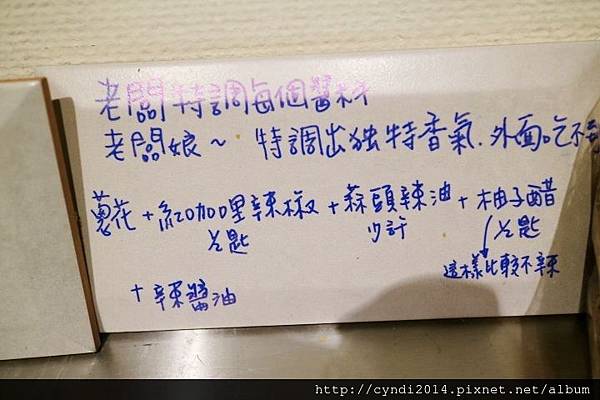 老闆特調每個醬料
老闆娘~ 特調出独特香氣.外面吃不
蔥花+紅咖哩辣椒+蒜頭辣油+柚子醋
½匙 少許 ½匙
這樣比較不辣
+辣醬油
http://cyndi2014.pixnet.net/album